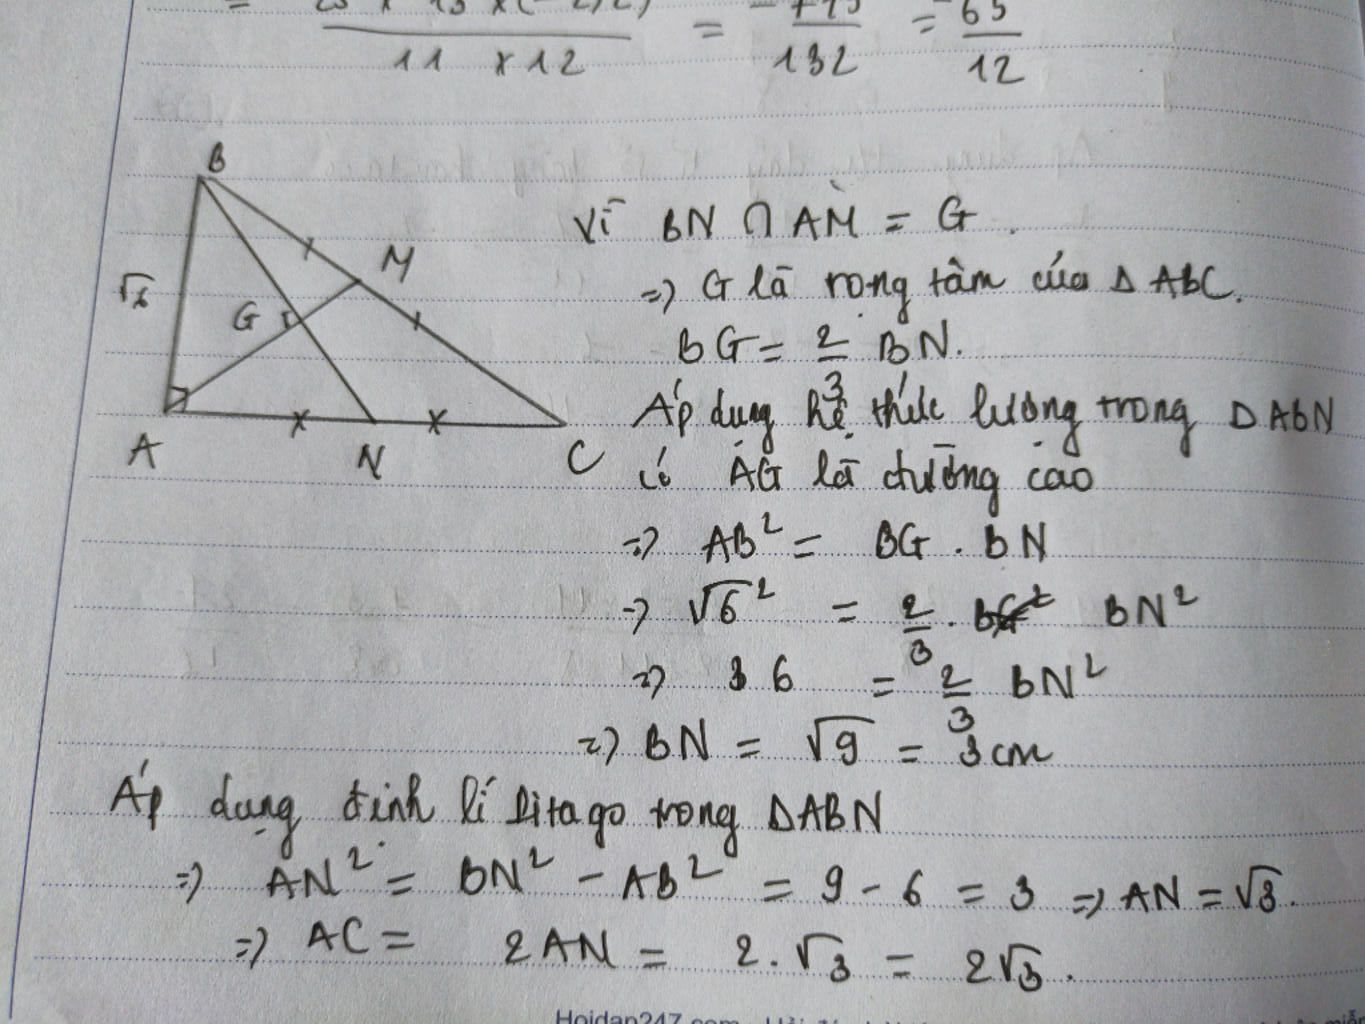 11 × 12 = 132 = 12
B
M
√6
G
A N C
Vì BN ∩ AM = G.
=> G là rọng tâm của Δ ABC.
BG = 2/3 BN.
Áp dụng hệ thức lương trong Δ ABN
có AG là đường cao
=> AB² = BG . BN
=> √6² = 2/3 . BN²
=> 36 = 2/3 BN²
=> BN = √9 = 3cm
Áp dụng định lí Pitago trong ΔABN
=> AN² = BN² - AB² = 9 - 6 = 3 => AN = √3.
=> AC = 2AN = 2.√3 = 2√3.
Hoidap247.com